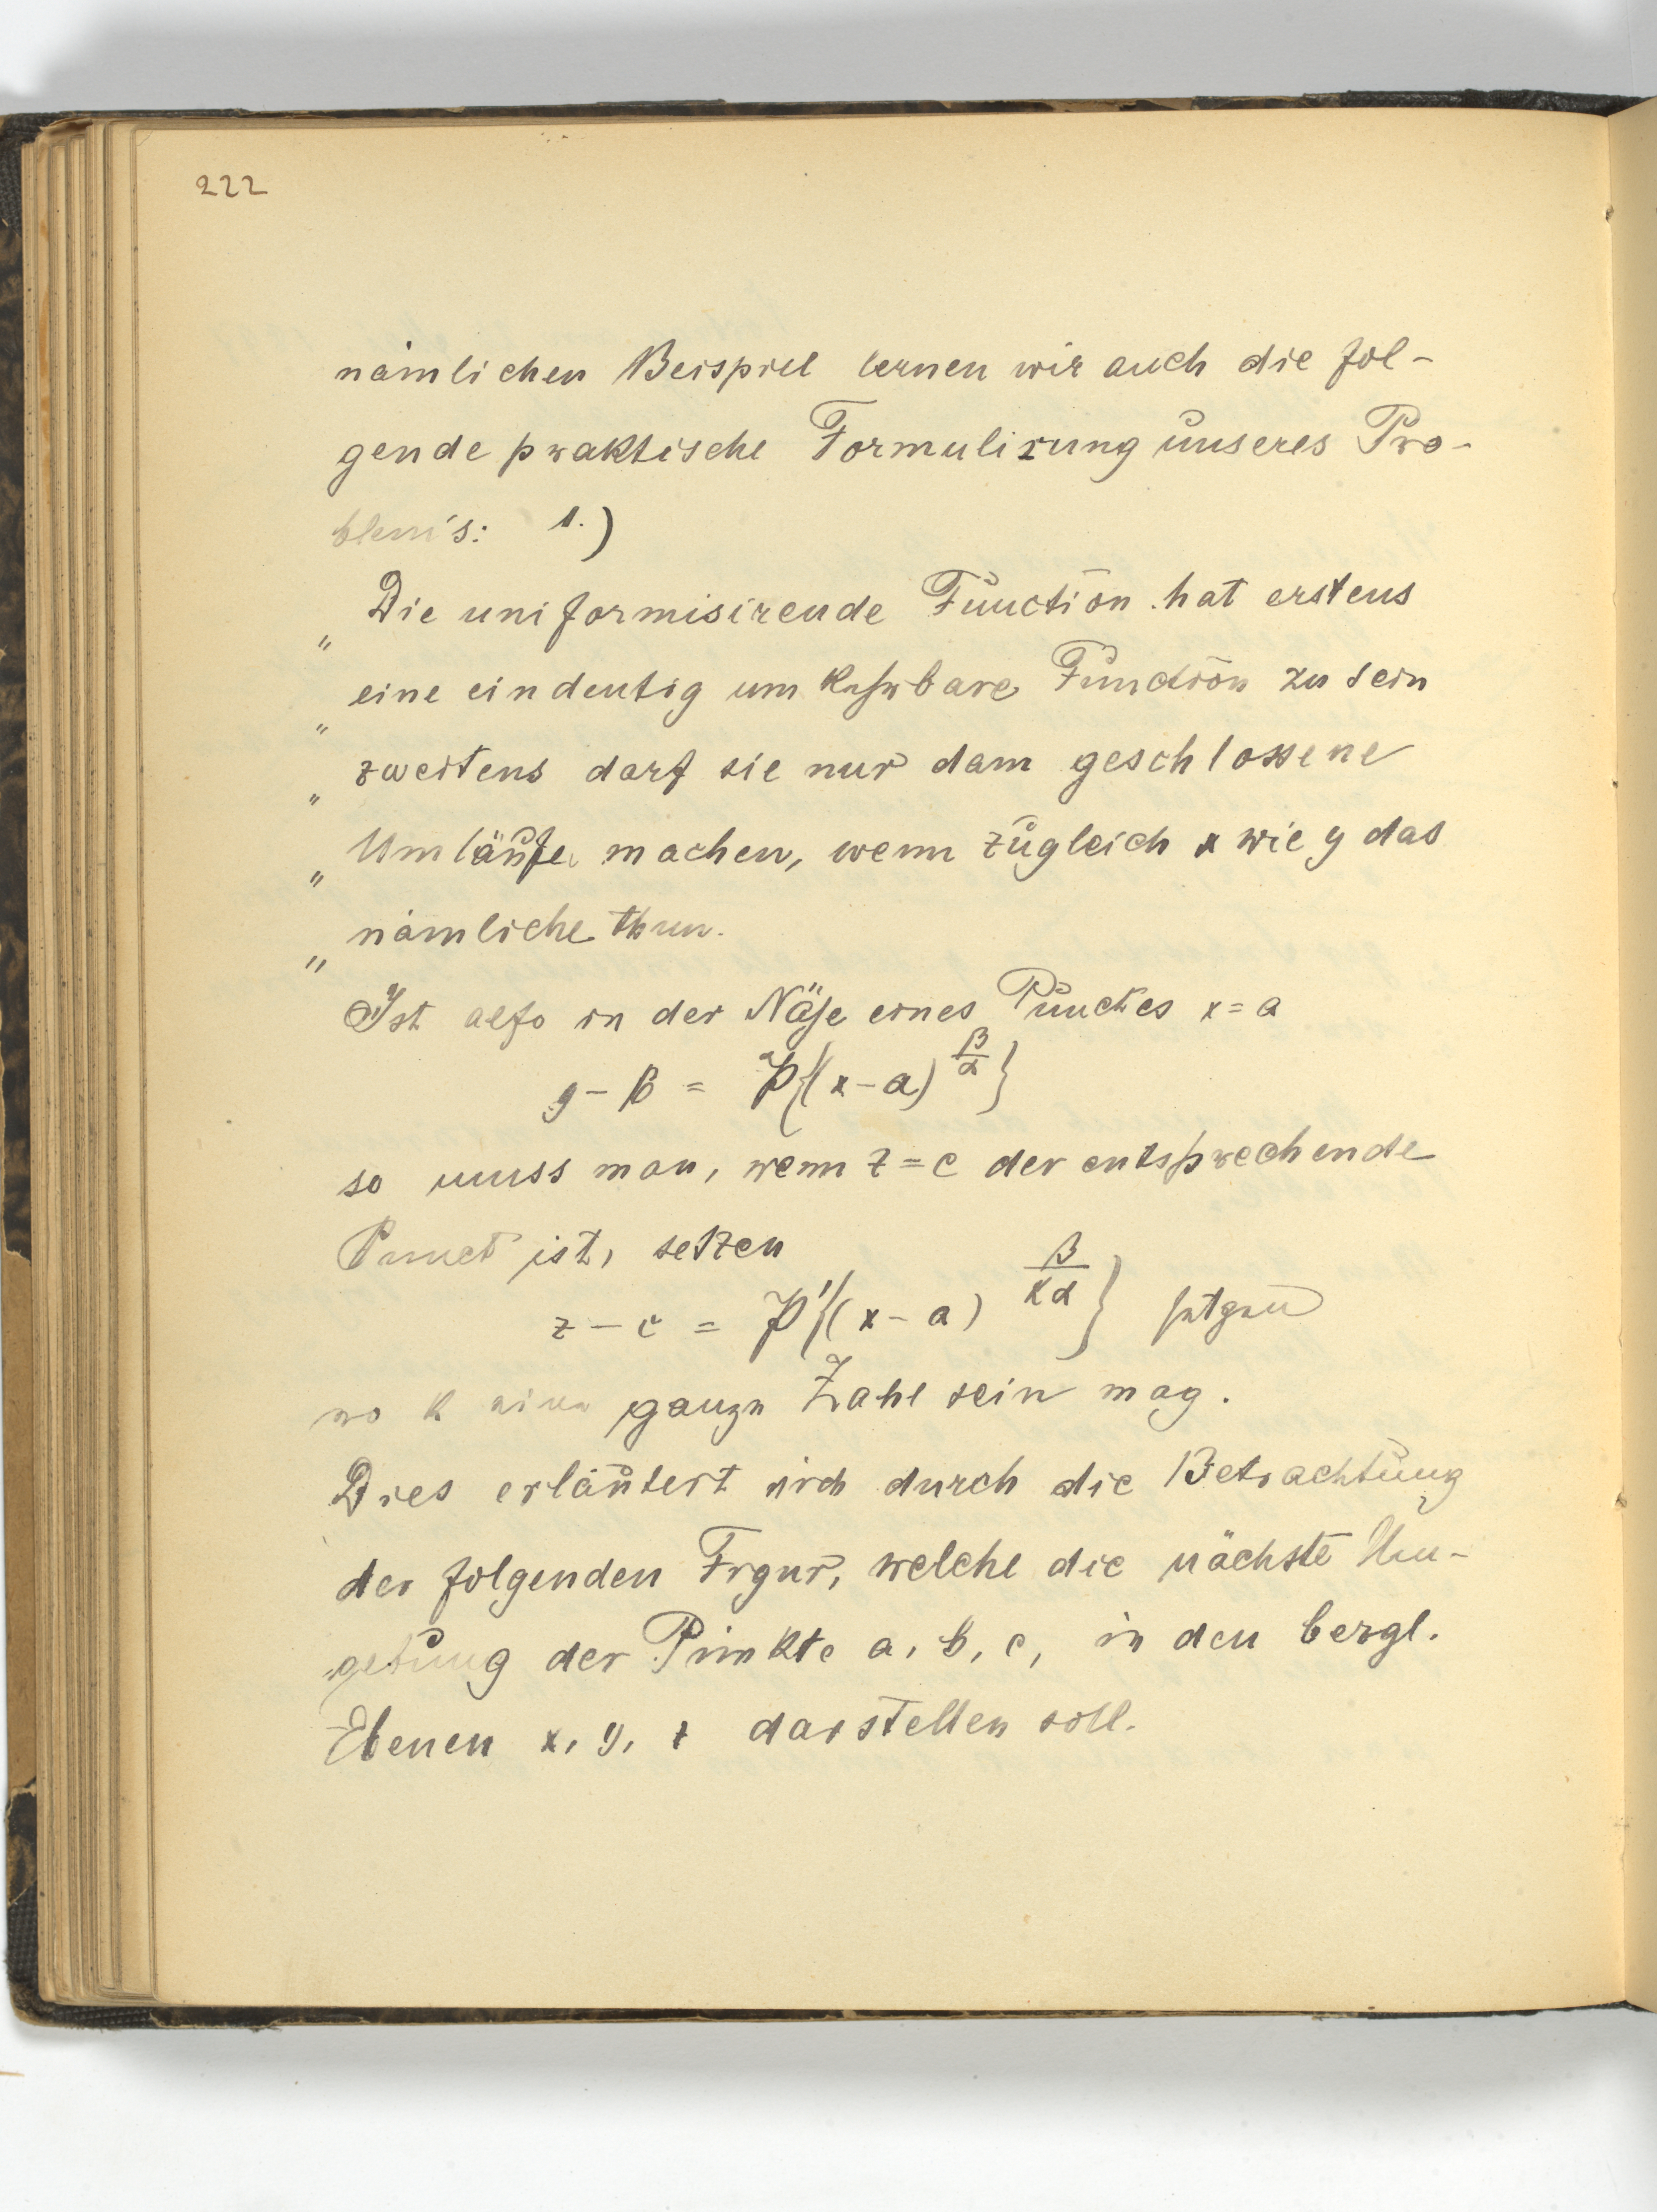 222
nämlichen Beispiel lernen wir auch die fol-
gende praktische Formulirung unseres Pro-
blem's: 1.)
„ Die uniformisirende Function hat erstens
„ eine eindeutig umkehrbare Function zu sein
„ zweitens darf sie nur dann geschlossene
„ Umläufe machen, wenn zugleich x wie y das
„ nämliche thun.
Ist also in der Nähe eines Punctes x = a
y - b = P{(x-a)^{β/α}}
so muss man, wenn z = c der entsprechende
Punct ist, setzen
z - c = P'{(x-a)^{β/κα}}
wo κ eine ganze Zahl sein mag.
Dies erläutert sich durch die Betrachtung
der folgenden Figur, welche die nächste Um-
gebung der Punkte a, b, c, in den bezgl.
Ebenen x, y, z darstellen soll.